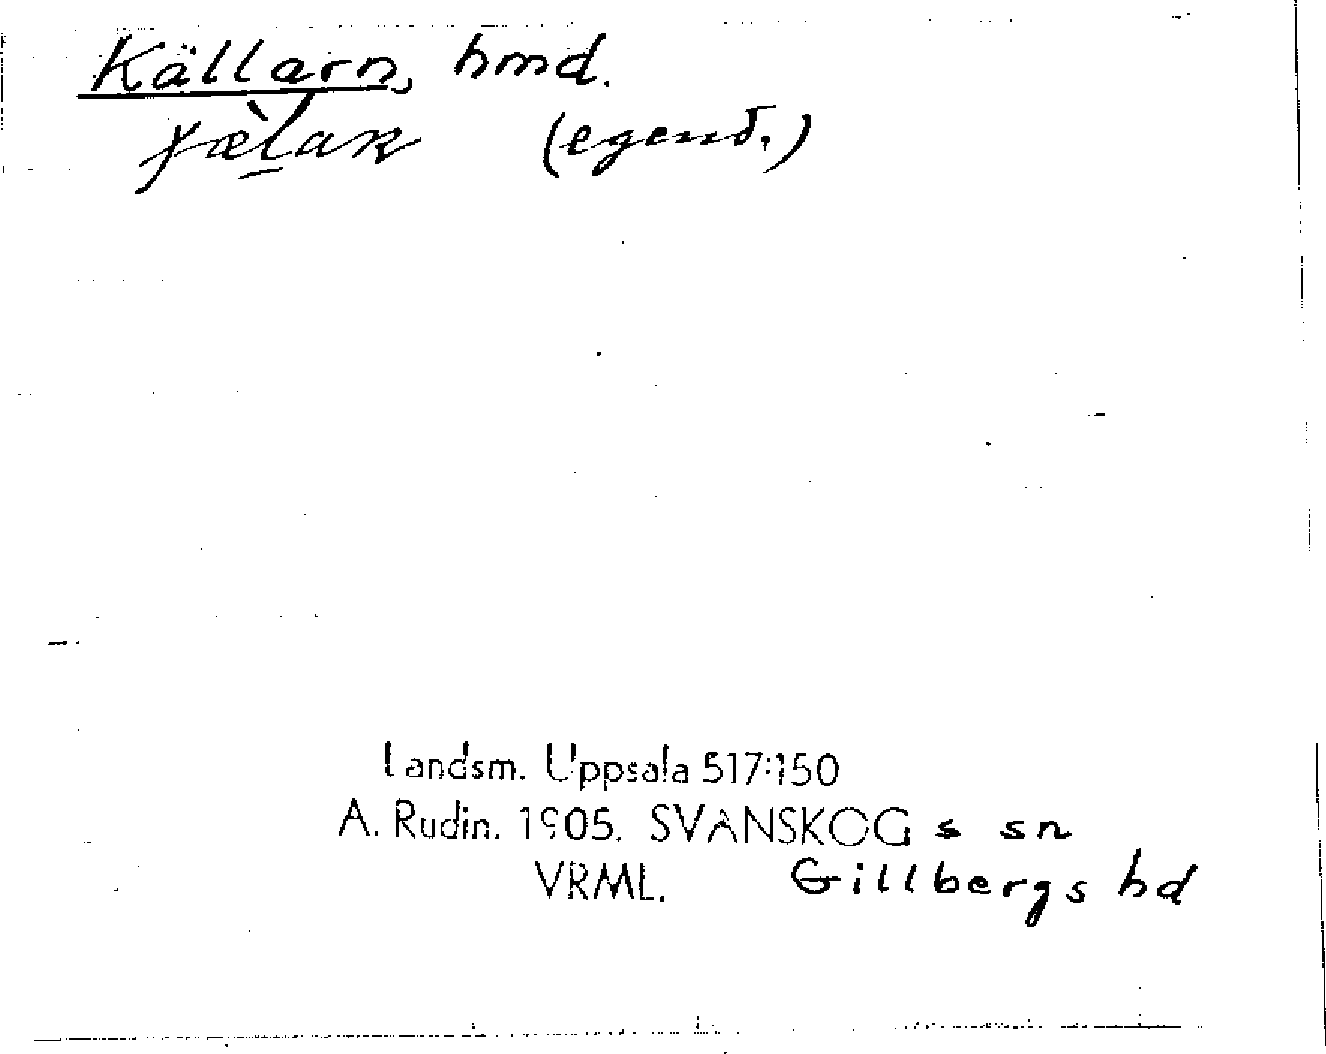 Källarn, hmd.
(egend.)
Landsm. Uppsala 517:150
A. Rudin. 1905. SVANSKOG s sn
VRML. Gillbergs hd